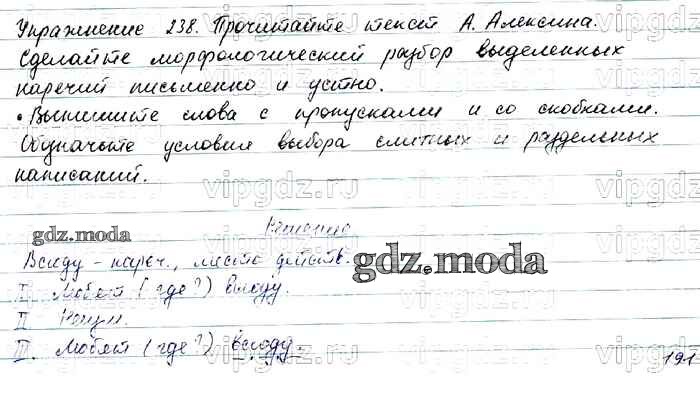 Упражнение 238. Прочитайте текст А. Алексина.
Сделайте морфологический разбор выделенных
наречий письменно и устно.
• Выпишите слова с пропусками и со скобками.
Обозначьте условия выбора слитных и раздельных
написаний.
vipgdz.ru
gdz.moda
Решение
gdz.moda
Всюду - нареч., место действ.
I. Любят (где?) всюду.
II Неизм.
III. Любят (где?) всюду.
191